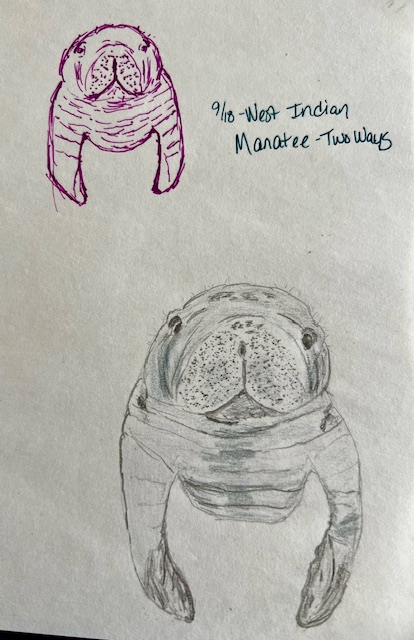 9/18-West Indian
Manatee-Two Ways